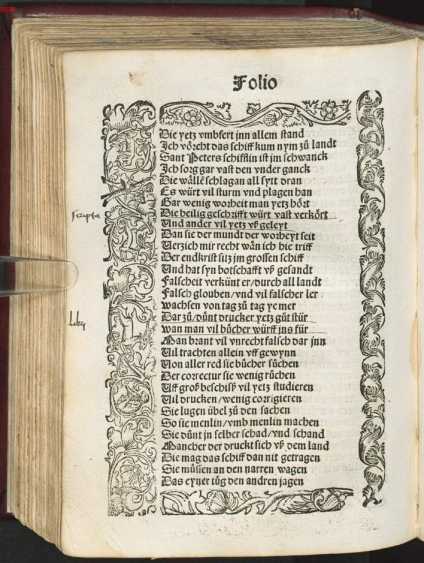 Folio
Die yetz vmbfert jnn allem stand
Ich vörcht das schiff kum nym zů landt
Sant Peters schifflin ist jm schwanck
Ich sorg gar vast den vnder ganck
Die wälle schlagan all sytt dran
Es würt vil sturm vnd plagen han
Gar wenig worheit man yetz hört
Die heilig geschrifft würt vast verkört
Und ander vil yetz vß geleyt
Dan sie der mundt der worheyt seit
Verzich mir recht wän ich hie triff
Der endkrist sitz jm grossen schiff
Und hat syn botschafft vß gesandt
Falscheit verkünt er / durch all landt
Falsch glouben / vnd vil falscher ler
wachsen von tag zů tag ye mer
Dar zů / důnt drucker yetz gůt stür
wan man vil bůcher würff jns für
Man brant vil vnrecht falsch dar jnn
Vil trachten allein vff gewynn
Von aller red sie bůcher sůchen
Der correctur sie wenig růchen
Vff groß beschisß vil yetz studieren
Vil drucken / wenig corrigieren
Sie lugen übel zů den sachen
So sie menlin / vmb menlin machen
Sie důnt jn selber schad / vnd schand
Mancher der druckt sich vß dem land
Die mag das schiff dan nit getragen
Sie můssen an den narren wagen
Das eyner tůg den andren jagen